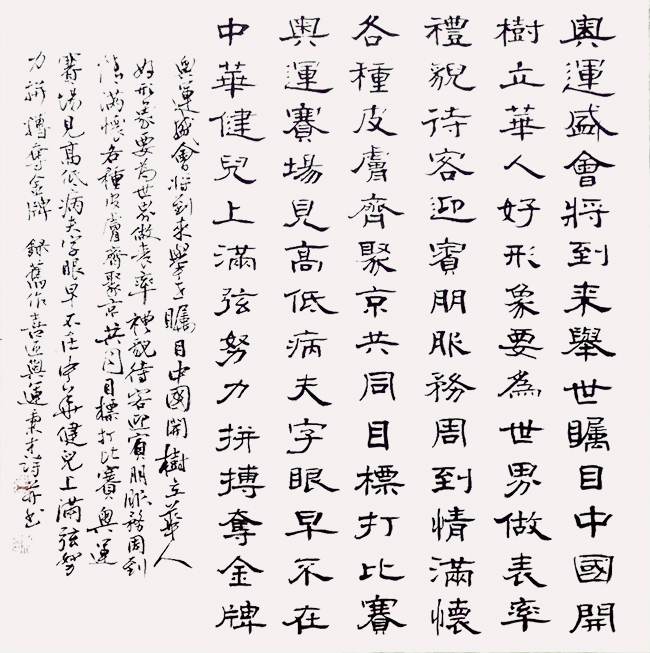 奥運盛會將到来舉世矚目中國開
樹立華人好形象要為世界做表率
禮貌待客迎賓朋服務周到情滿懷
各種皮膚齊聚京共同目標打比賽
奥運賽場見高低病夫字眼早不在
中華健兒上滿弦努力拼搏奪金牌
奥運盛會將到来舉世矚目中國開樹立華人
好形象要為世界做表率禮貌待客迎賓朋服務周到
情滿懷各種皮膚齊聚京共同目標打比賽奥運
賽場見高低病夫字眼早不在中華健兒上滿弦努
力拼搏奪金牌 録舊作喜迎奥運詩并書